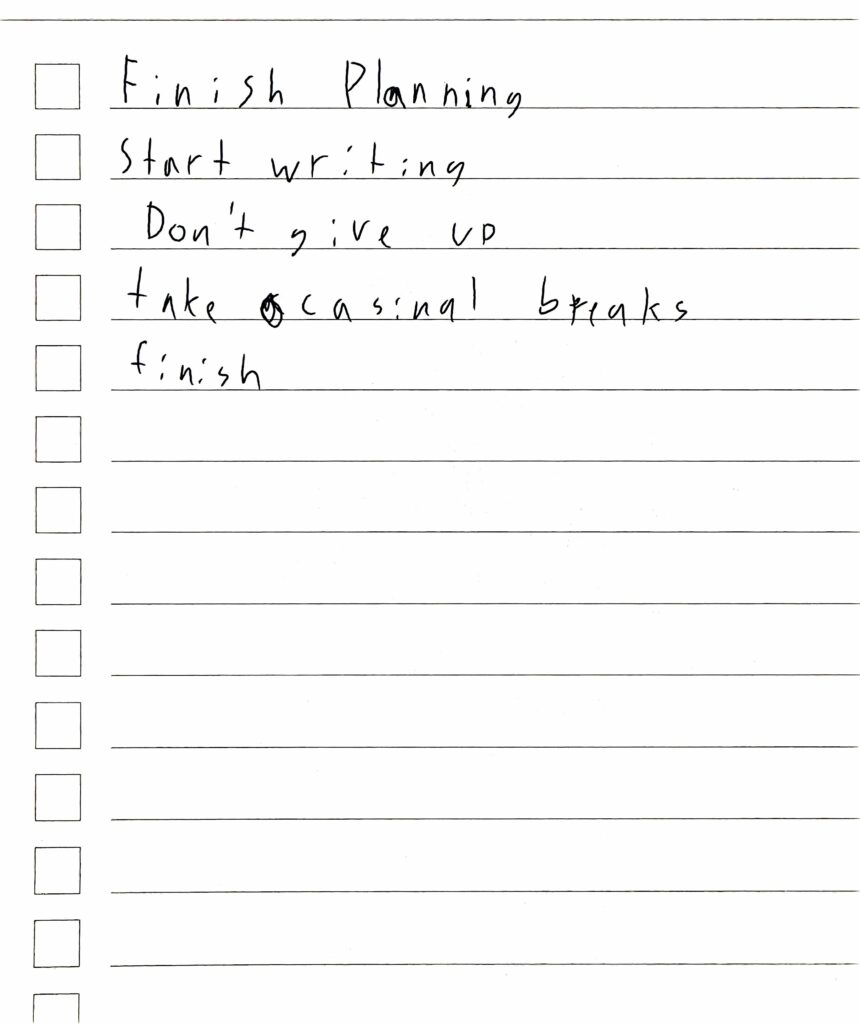 Finish Planning
Start writing
Don't give up
take ocasinal breaks
finish